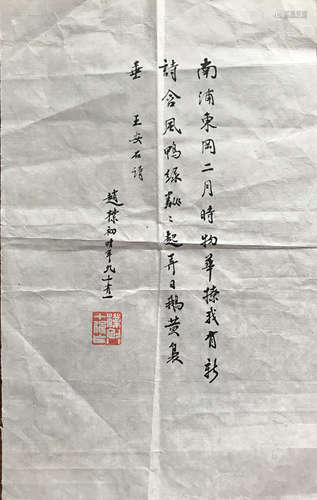 南浦東岡二月時物華撩我有新
詩含風鴨綠粼〻起弄日鵝黃裊
垂 王安石詩
趙樸初時年九十有一